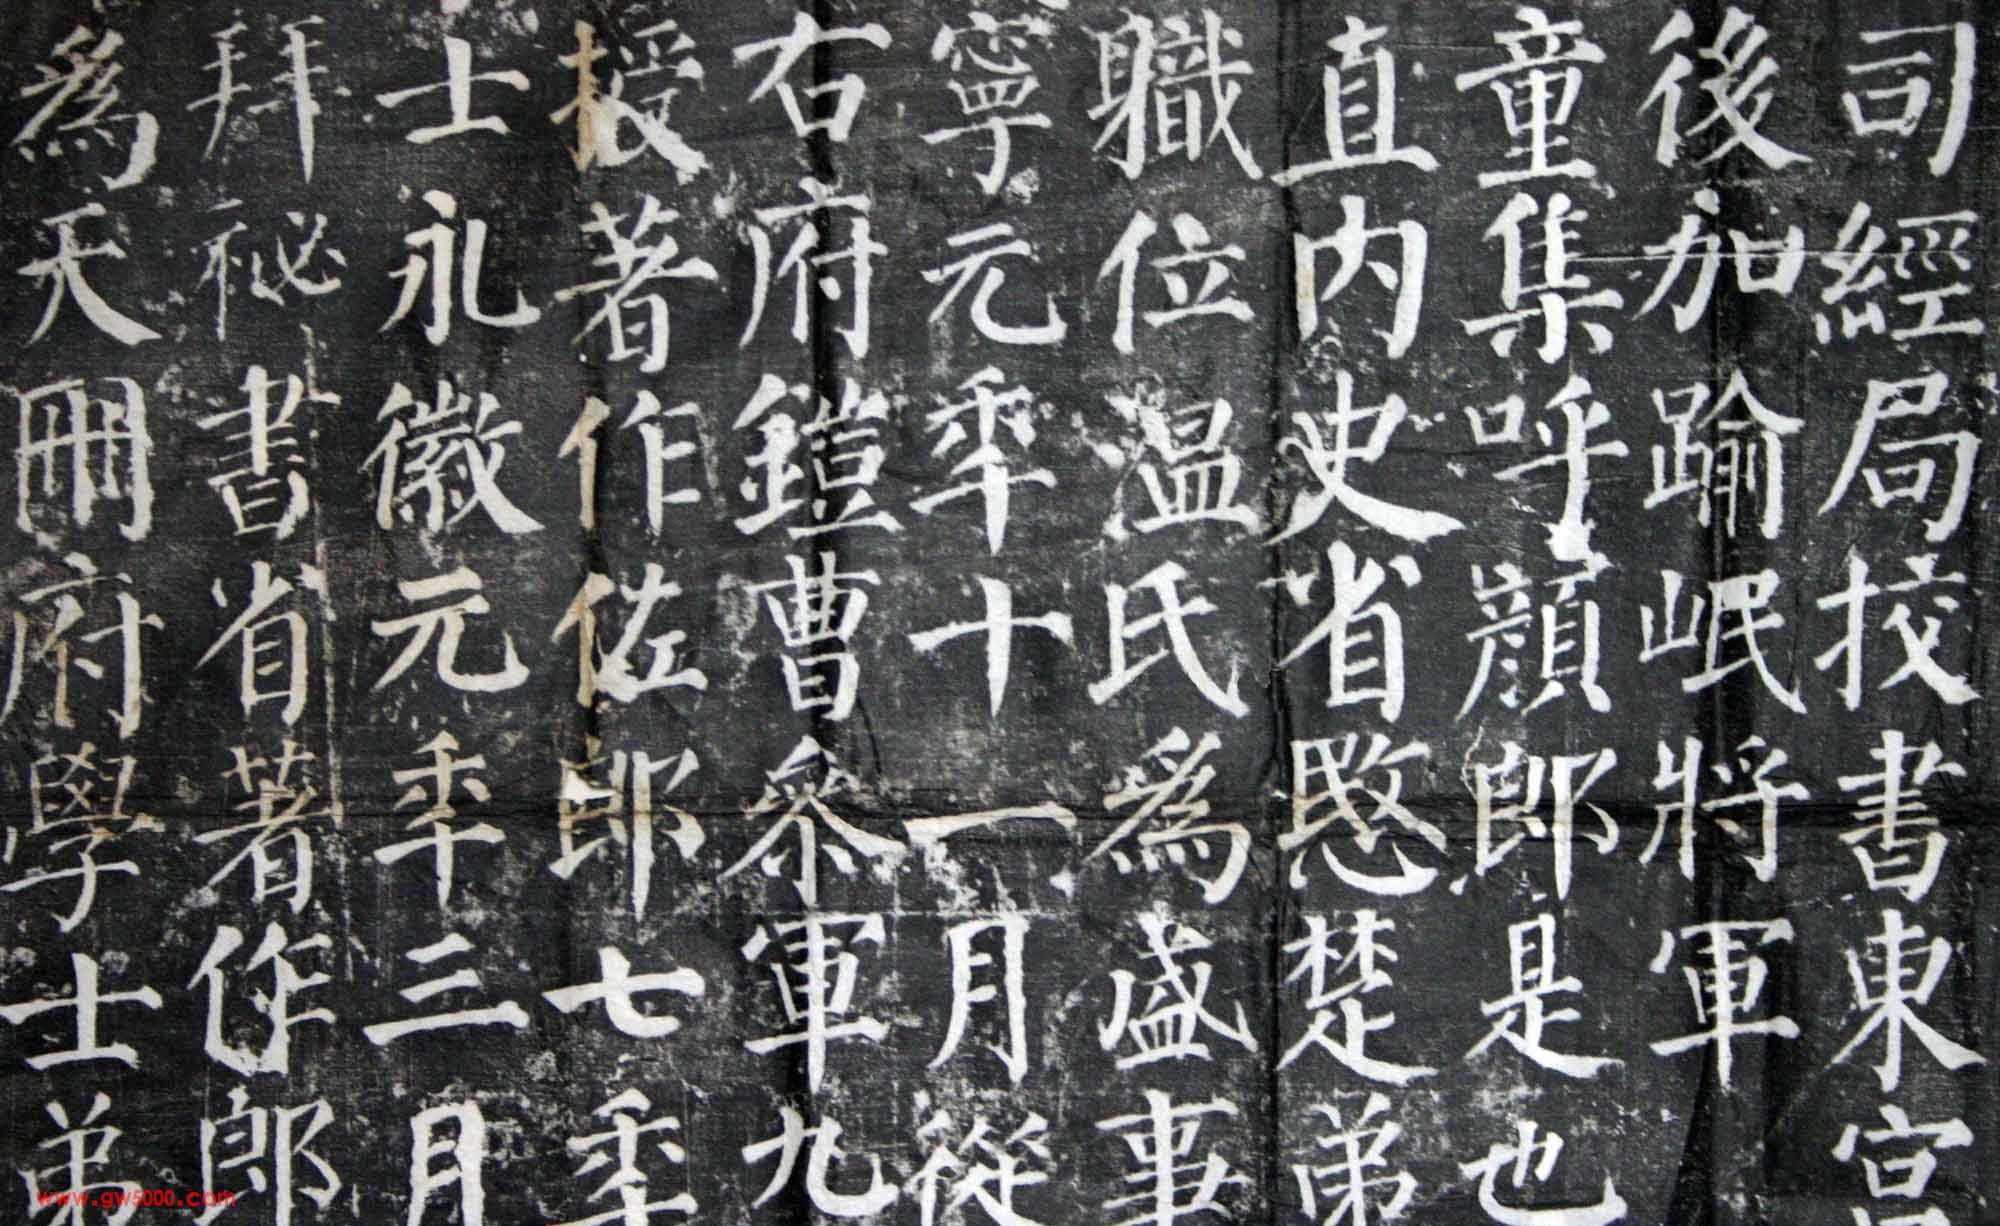 司經局挍書東宮
後加踰岷將軍
童集呼顏郎是也
直内史省愍楚弟
職位温氏爲盛事
寧元秊十一月從
右府鎧曹叅軍九
授著作佐郎七秊
士永徽元秊三月
拜祕書省著作郎
爲天冊府學士弟
www.gw5000.com